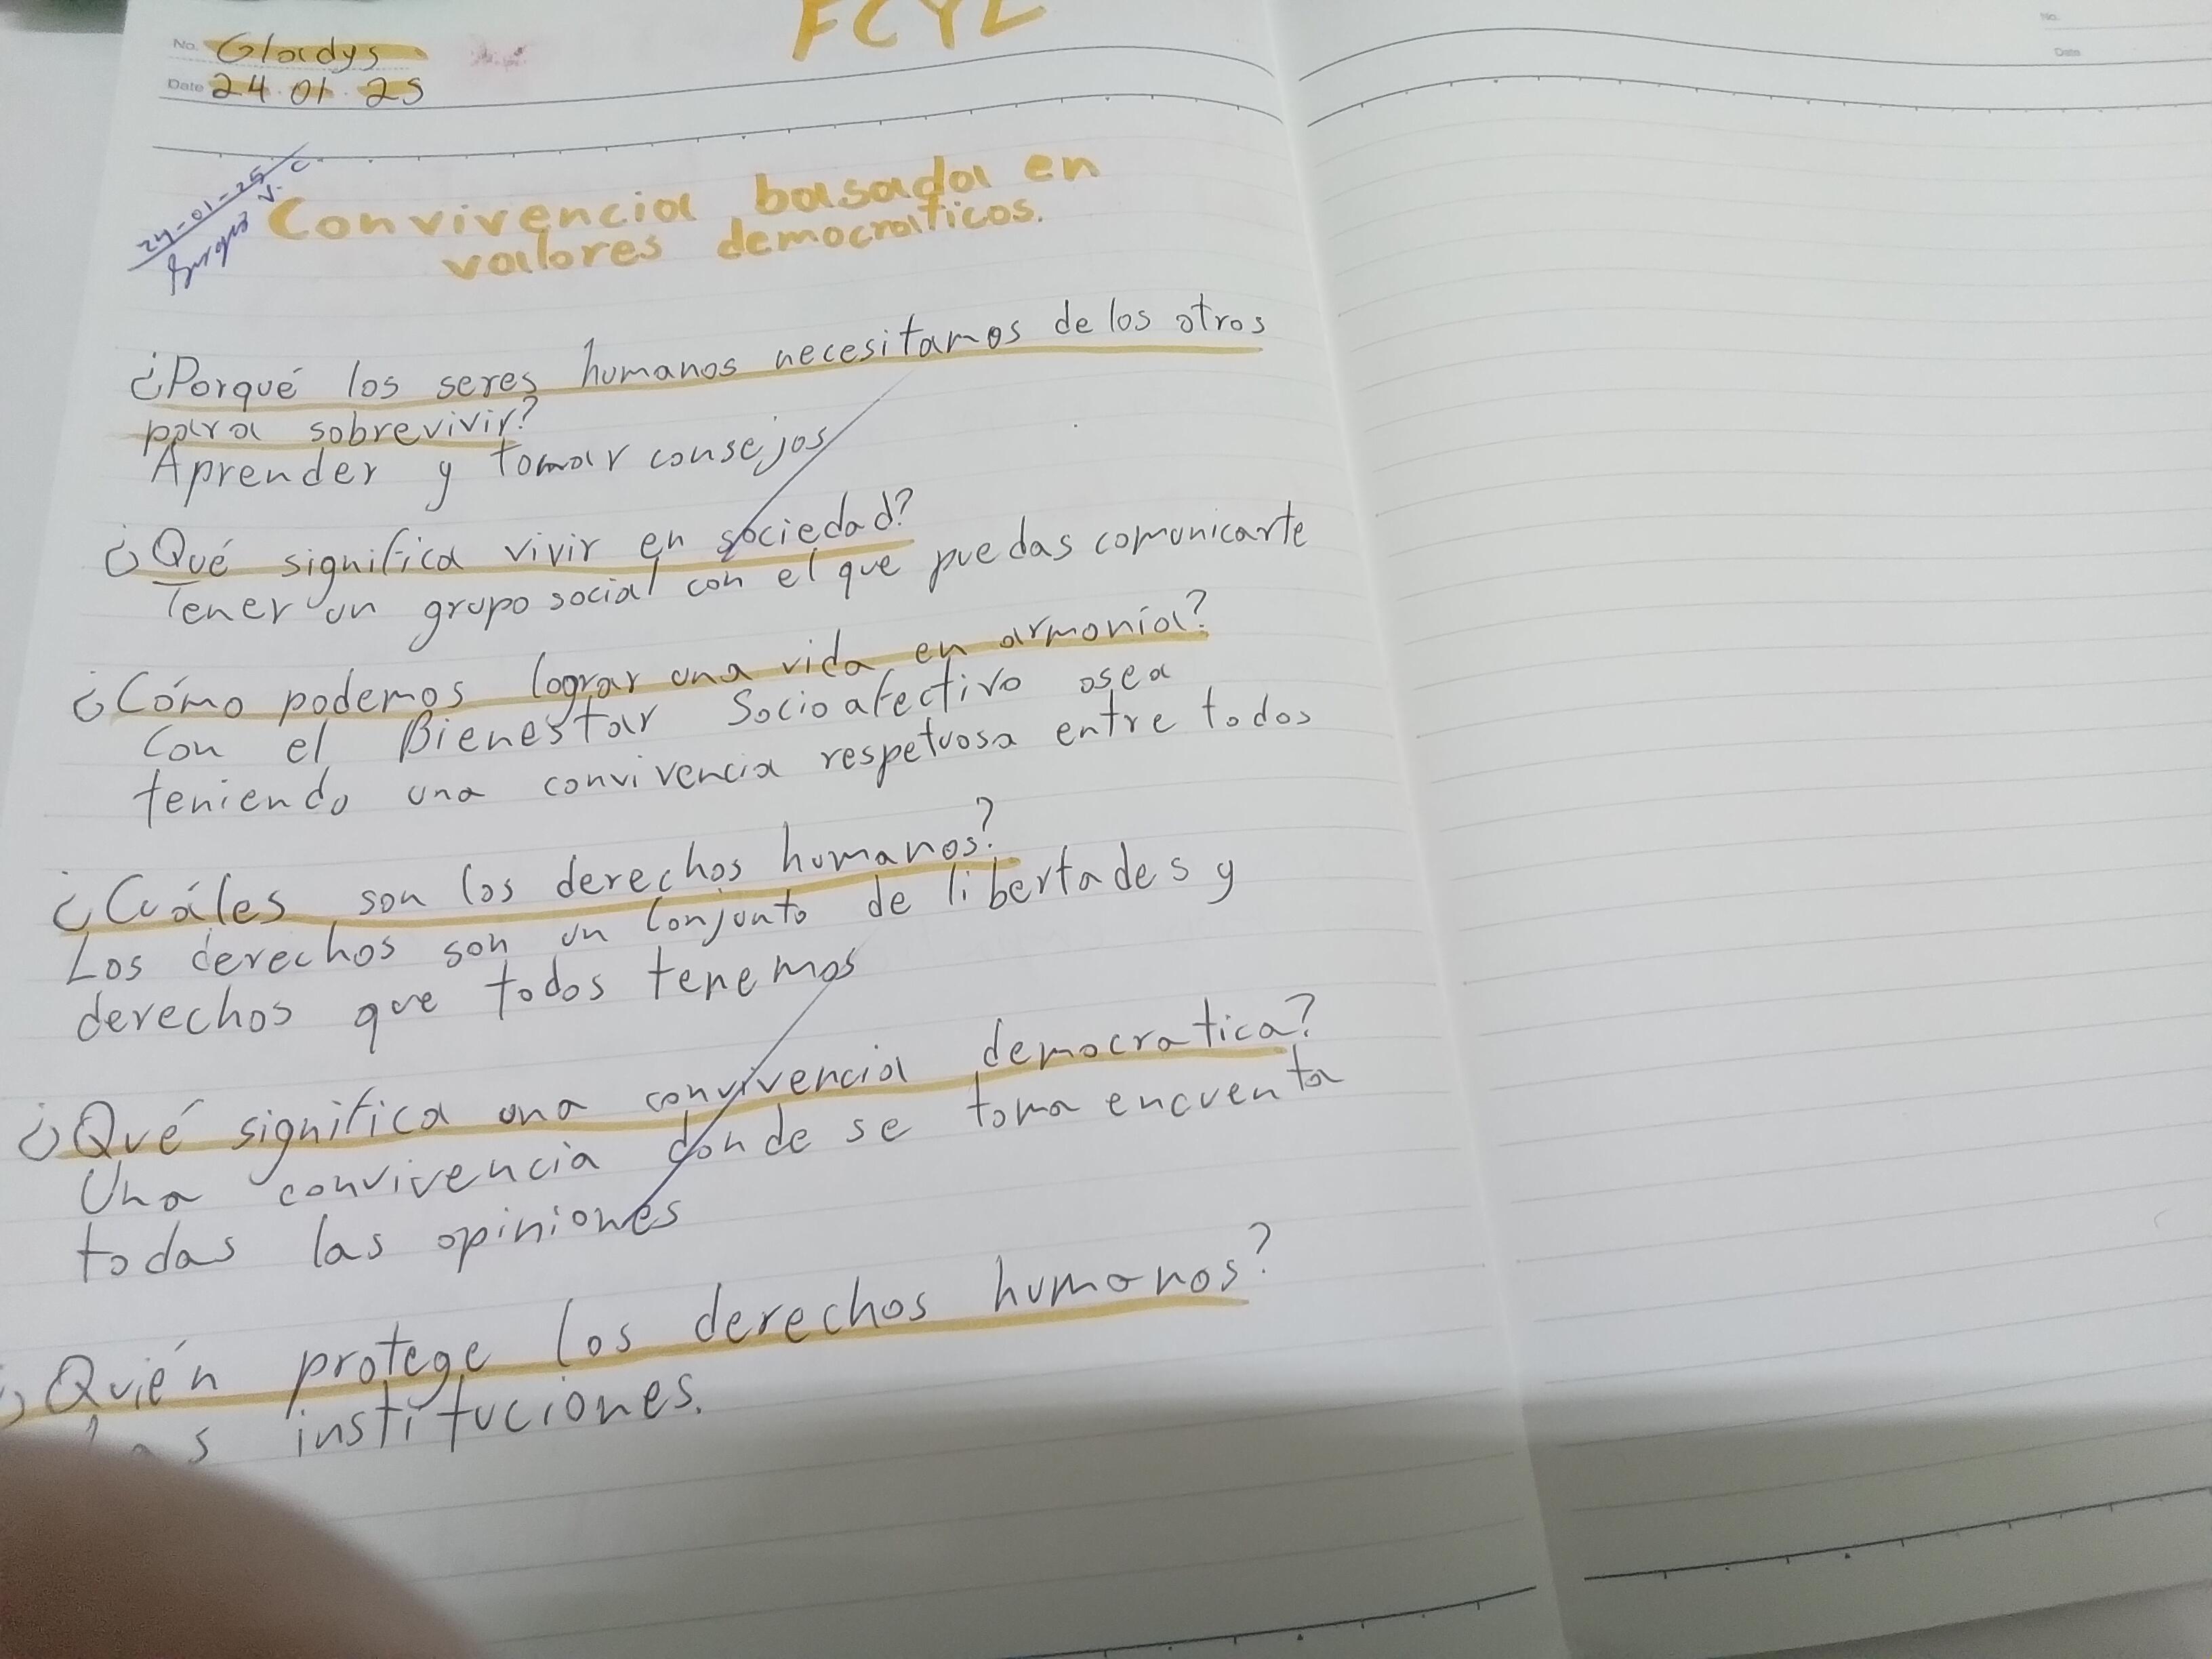 FCYE
No. Gladys
Date 24.01.25
24-01-25
V. C
Convivencia basada en
valores democraticos.
¿Porqué los seres humanos necesitamos de los otros
para sobrevivir?
Aprender y tomar consejos
¿Qué significa vivir en sociedad?
Tener un grupo social con el que puedas comunicarte
¿Cómo podemos lograr una vida en armonía?
Con el Bienestar Socioafectivo osea
teniendo una convivencia respetuosa entre todos
¿Cuáles son los derechos humanos?
Los derechos son un Conjunto de libertades y
derechos que todos tenemos
¿Qué significa una convivencia democratica?
Una convivencia donde se toma encuenta
todas las opiniones
¿Quién protege los derechos humanos?
las instituciones.
No.
Date